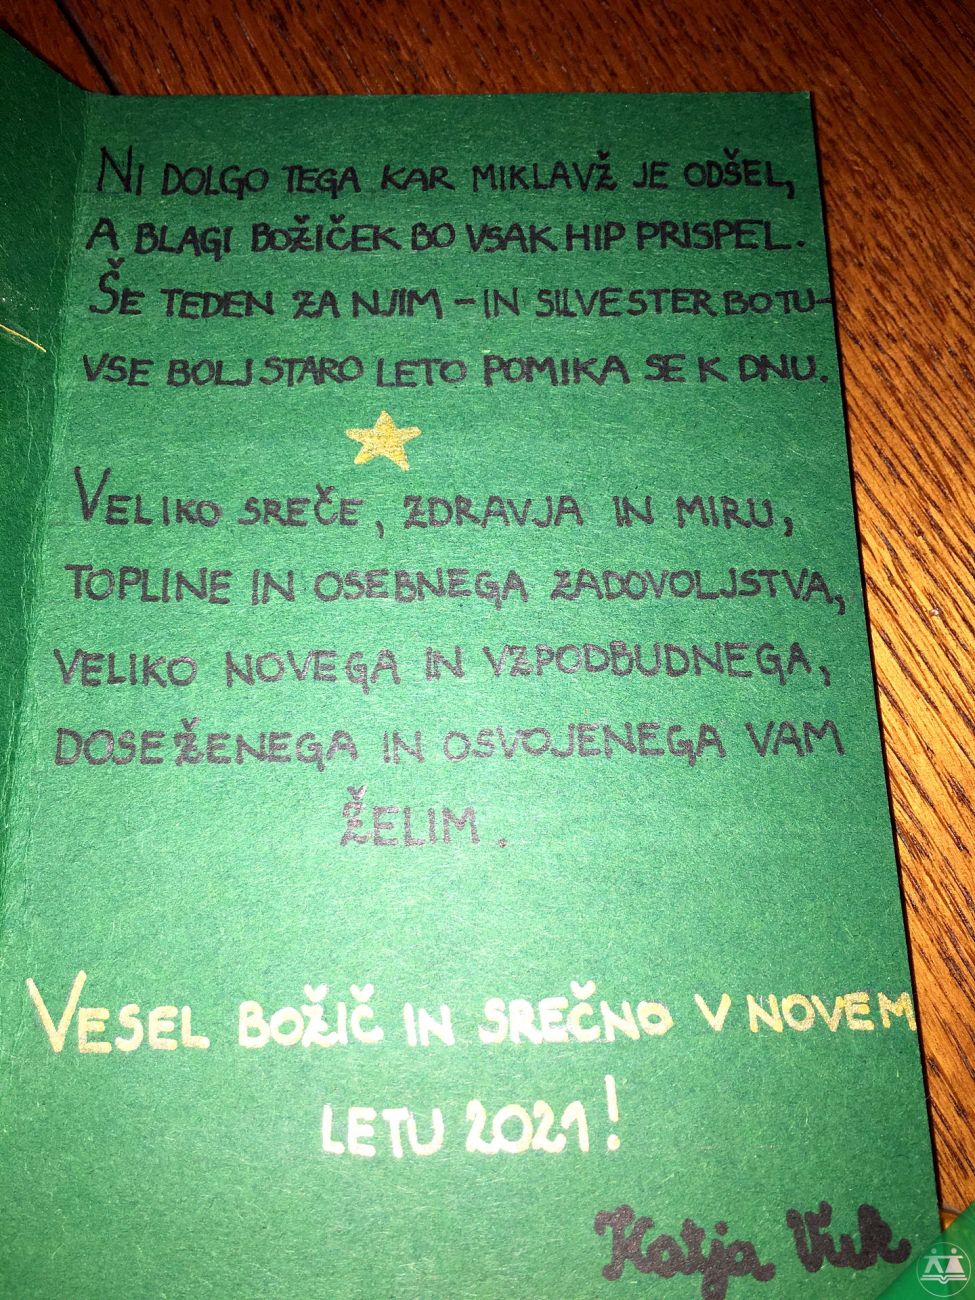 NI DOLGO TEGA KAR MIKLAVŽ JE ODŠEL,
A BLAGI BOŽIČEK BO VSAK HIP PRISPEL.
ŠE TEDEN ZA NJIM – IN SILVESTER BO TU –
VSE BOLJ STARO LETO POMIKA SE K DNU.
VELIKO SREČE, ZDRAVJA IN MIRU,
TOPLINE IN OSEBNEGA ZADOVOLJSTVA,
VELIKO NOVEGA IN VZPODBUDNEGA,
DOSEŽENEGA IN OSVOJENEGA VAM
ŽELIM.
VESEL BOŽIČ IN SREČNO V NOVEM
LETU 2021!
Katja Vuk